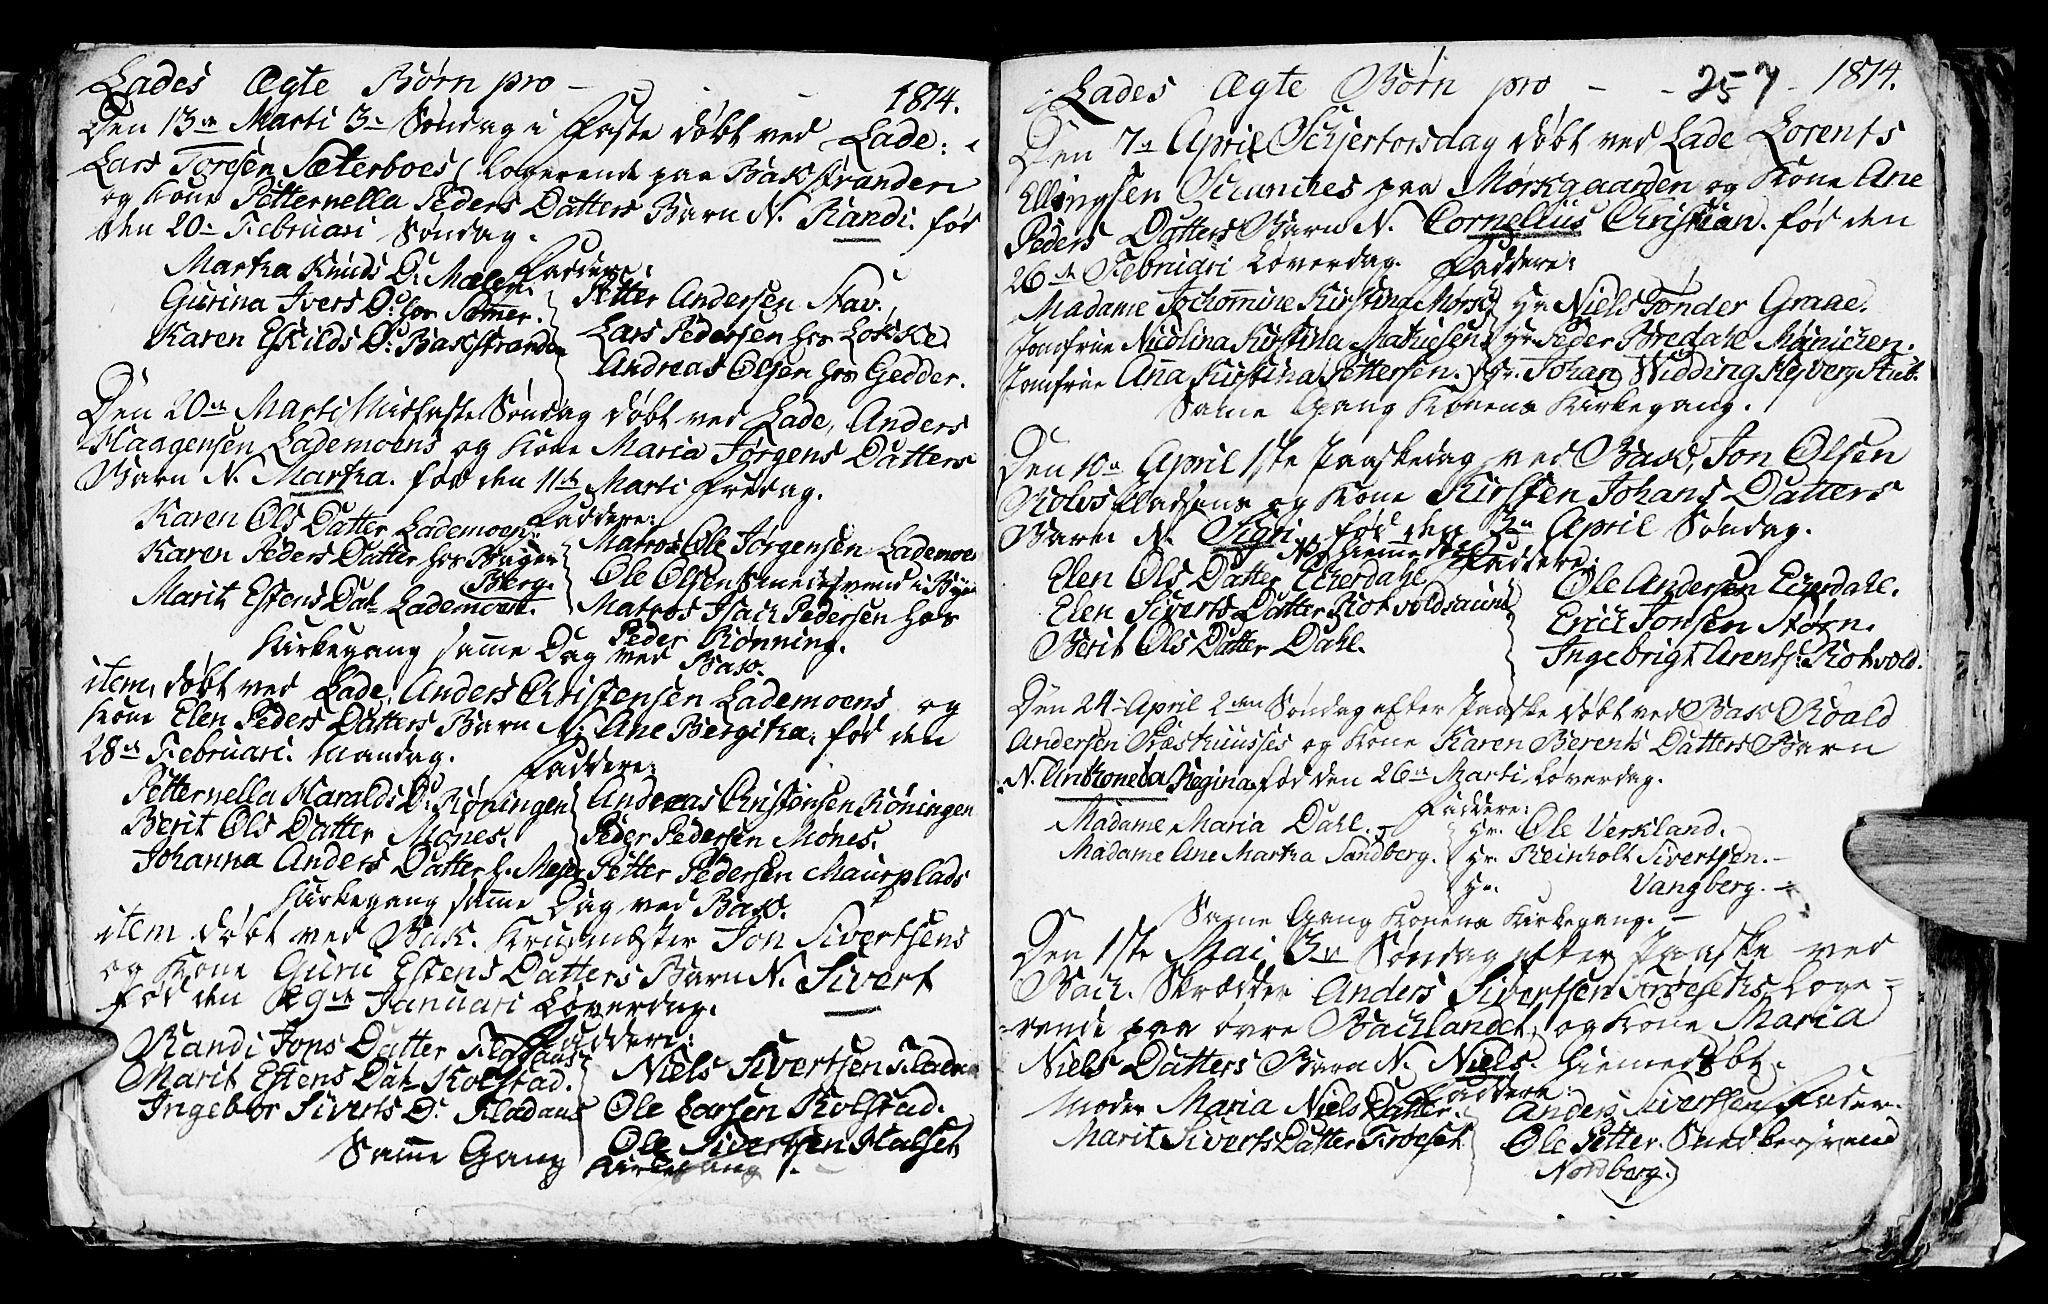 Lades Ægte Børn pro - - - 1814.
Den 13de Marti 3de Søndag i Faste døbt ved Lade:
Lars Torsen Sæterboes (logerende paa Bakstranden
og Kone Petternella Peders Datters Barn N. Randi. fød
den 20de Februari Søndag.
Faddere:
Martha Knuds D. Mælen.
Gurina Ivers D. hos Sommer.
Karen Eskilds D. Bakstranden
Petter Andersen Stav.
Lars Pedersen hos Løkke.
Andreas Olsen hos Gedder.
Den 20de Marti Midfaste Søndag døbt ved Lade, Anders
Haagensen Lademoens og Kone Maria Jørgens Datters
Barn N. Martha. fød den 11de Marti Fredag.
Faddere:
Karen Ols Datter Lademoen.
Karen Peders Datter hos Bager
Berg.
Marit Estens Dat. Lademoen.
Matros Ole Jørgensen Lademoe
Ole Olsen Smedesvend i Bye
Matros Isach Pedersen hos
Peder Rønning.
Kirkegang samme Dag ved Bak.
item, døbt ved Lade, Anders Christensen Lademoens og
Kone Elen Peders Datters Barn N. Ane Bergitha, fød den
28de Februari. Mandag.
Faddere:
Petternella Haralds D. Røningen
Berit Ols Datter Mones.
Johanna Anders Datter h. Meyer
Andreas Christensen Røningen
Peder Pedersen Mones.
Petter Pedersen Maurplads
Kirkegang samme Dag ved Bak.
item døbt ved Bak. Krudmester Jon Sivertsens
og Kone Guru Estens Datters Barn N. Sivert
fød den 29de Januari Løverdag.
Faddere:
Randi Jons Datter Kladhaus
Marit Estens Dat. Kolstad.
Ingebor Siverts D. Kladhaus
Niels Sivertsen Kladhu
Ole Larsen Kolstad.
Ole Sivertsen Halset
Samme Gang Kirkegang.
Lades Ægte Børn pro - - 257 - 1814.
Den 7de April Schjertorsdag døbt ved Lade Lorents
Ellingsen Schanches paa Mørkgaarden og Kone Ane
Peders Datters Barn N. Cornelius Christian. fød den
26de Februari Løverdag. Faddere:
Madame Jochomine Kirstina Mørch
Jomfrue Nicolina Kirstina Mathiesen
Jomfrue Anna Kirstina Pettersen.
Hr. Niels Tønder Graae.
Hr. Peder Bredahl Münichen.
Hr. Johan Widding Heyberg Stub.
Same Gang Konens Kirkegang.
Den 10de April 1ste Paaskedag ved Bak, Jon Olsen
Rotvoldsadsens og Kone Kirsten Johans Datters
Barn N. Sigri fød den 3de April Søndag.
NB hiemedøbt Faddere:
Elen Ols Datter Eckerdahl.
Elen Siverts Datter Rotvoldsaunet
Berit Ols Datter Dahl.
Ole Andersen Eckerdahl.
Erich Jonsen Støren.
Ingebrigt Arents: Rotvold.
Den 24de April 2den Søndag efter Paaske døbt ved Bak Roald
Andersen Præsthuusses og Kone Karen Berents Datters Barn
N. Anthonetta Regina. fød den 26de Marti Løverdag.
Faddere:
Madame Maria Dahl.
Madame Ane Martha Sandberg.
Hr. Ole Verkland.
Hr. Reinholt Sivertsen.
Hr. Vangberg.
Same Gang Konens Kirkegang.
Den 1ste Mai, 3de Søndag efter Paaske ved
Bach. Skrædder Anders Sivertsen Trøseths Loge=
rende paa øvre Bachlandet, og Kone Maria
Niels Datters Barn N. Niels. hiemedøbt.
Faddere:
Moder Maria Niels Datter.
Marit Siverts Datter Trøset
Anders Sivertsen Fader.
Ole Petter Snedkersvend
Nordberg.